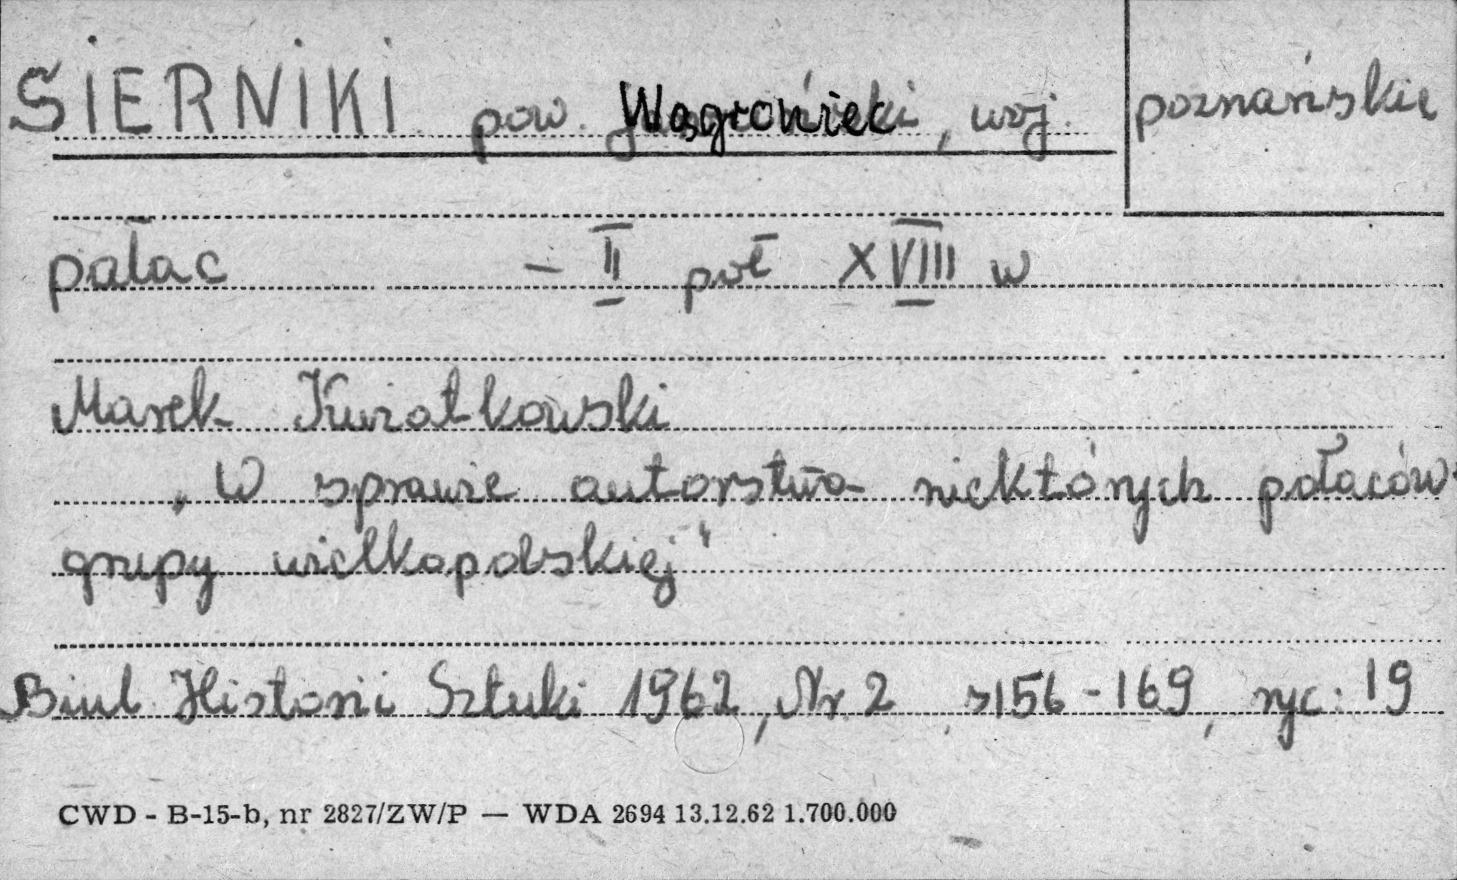 SIERNIKI pow. Wągrowiec, woj. poznańskie
pałac – II poł XVIII w
Marek Kwiatkowski
„W sprawie autorstwa niektórych pałaców
grupy wielkopolskiej"
Biul Historii Sztuki 1962, Nr 2 s156-169, ryc: 19
CWD - B-15-b, nr 2827/ZW/P — WDA 2694 13.12.62 1.700.000